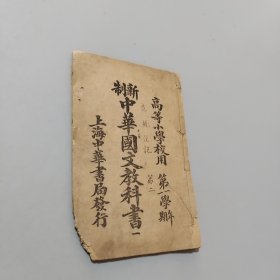 高等小學校用 第一學年
第一學期
新制中華國文教科書一
上海中華書局發行